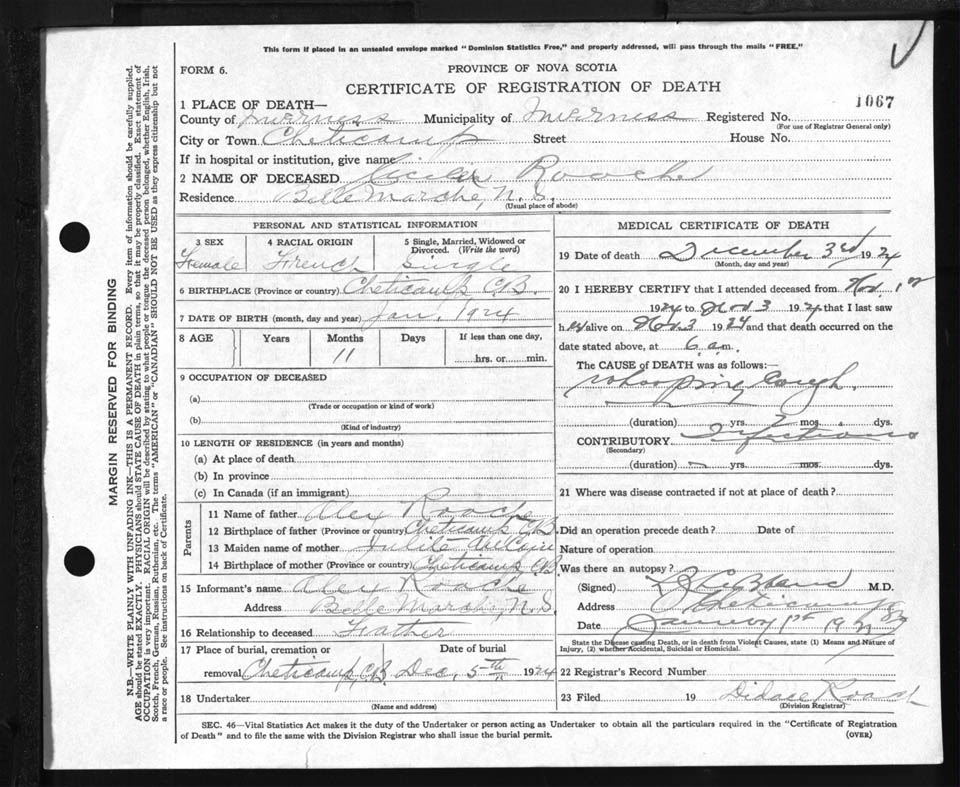 This form if placed in an unsealed envelope marked "Dominion Statistics Free," and properly addressed, will pass through the mails "FREE."
FORM 6.
PROVINCE OF NOVA SCOTIA
CERTIFICATE OF REGISTRATION OF DEATH
1067
1 PLACE OF DEATH—
County of Inverness Municipality of Inverness Registered No.
(For use of Registrar General only)
City or Town Cheticamp Street House No.
If in hospital or institution, give name
2 NAME OF DECEASED Roache
Residence Belle Marche, N.S.
(Usual place of abode)
PERSONAL AND STATISTICAL INFORMATION
3 SEX 4 RACIAL ORIGIN 5 Single, Married, Widowed or Divorced. (Write the word)
Female French Single
6 BIRTHPLACE (Province or country) Cheticamp C.B.
7 DATE OF BIRTH (month, day and year) Jan, 1924
8 AGE Years Months Days If less than one day,
11 hrs. or min.
9 OCCUPATION OF DECEASED
(a)
(Trade or occupation or kind of work)
(b)
(Kind of industry)
10 LENGTH OF RESIDENCE (in years and months)
(a) At place of death
(b) In province
(c) In Canada (if an immigrant)
Parents
11 Name of father Alex Roache
12 Birthplace of father (Province or country) Cheticamp C.B.
13 Maiden name of mother Julie AuCoin
14 Birthplace of mother (Province or country) Cheticamp C.B.
15 Informant's name Alex Roache
Address Belle Marche, N.S.
16 Relationship to deceased Father
17 Place of burial, cremation or Date of burial
removal Cheticamp, C.B. Dec, 5th 1924
18 Undertaker
(Name and address)
MEDICAL CERTIFICATE OF DEATH
19 Date of death December 3rd 1924
(Month, day and year)
20 I HEREBY CERTIFY that I attended deceased from Nov.
1924 to Nov 3 1924 that I last saw
h er alive on Nov. 3 1924 and that death occurred on the
date stated above, at 6 a.m.
The CAUSE OF DEATH was as follows:—
whooping cough
(duration) yrs. mos. dys.
CONTRIBUTORY
(Secondary)
(duration) yrs. mos. dys.
21 Where was disease contracted if not at place of death?
Did an operation precede death? Date of
Nature of operation
Was there an autopsy?
(Signed) M.D.
Address Cheticamp
Date January 1st 19
State the Disease causing Death, or in death from Violent Causes, state (1) Means and Nature of
Injury, (2) whether Accidental, Suicidal or Homicidal.
22 Registrar's Record Number
23 Filed 19 Didace Roach
(Division Registrar)
SEC. 46—Vital Statistics Act makes it the duty of the Undertaker or person acting as Undertaker to obtain all the particulars required in the "Certificate of Registration
of Death" and to file the same with the Division Registrar who shall issue the burial permit.
(OVER)
MARGIN RESERVED FOR BINDING
N.B.—WRITE PLAINLY WITH UNFADING INK—THIS IS A PERMANENT RECORD. Every item of information should be carefully supplied.
AGE should be stated EXACTLY. PHYSICIANS should STATE CAUSE OF DEATH in plain terms, so that it may be properly classified. Exact statement of
OCCUPATION is very important. RACIAL ORIGIN will be described by stating to what people or tongue the deceased person belonged, whether English, Irish,
Scotch, French, German, Russian, Ruthenian, etc. The terms "AMERICAN" or "CANADIAN" SHOULD NOT BE USED as they express citizenship but not
a race or people. See instructions on back of Certificate.